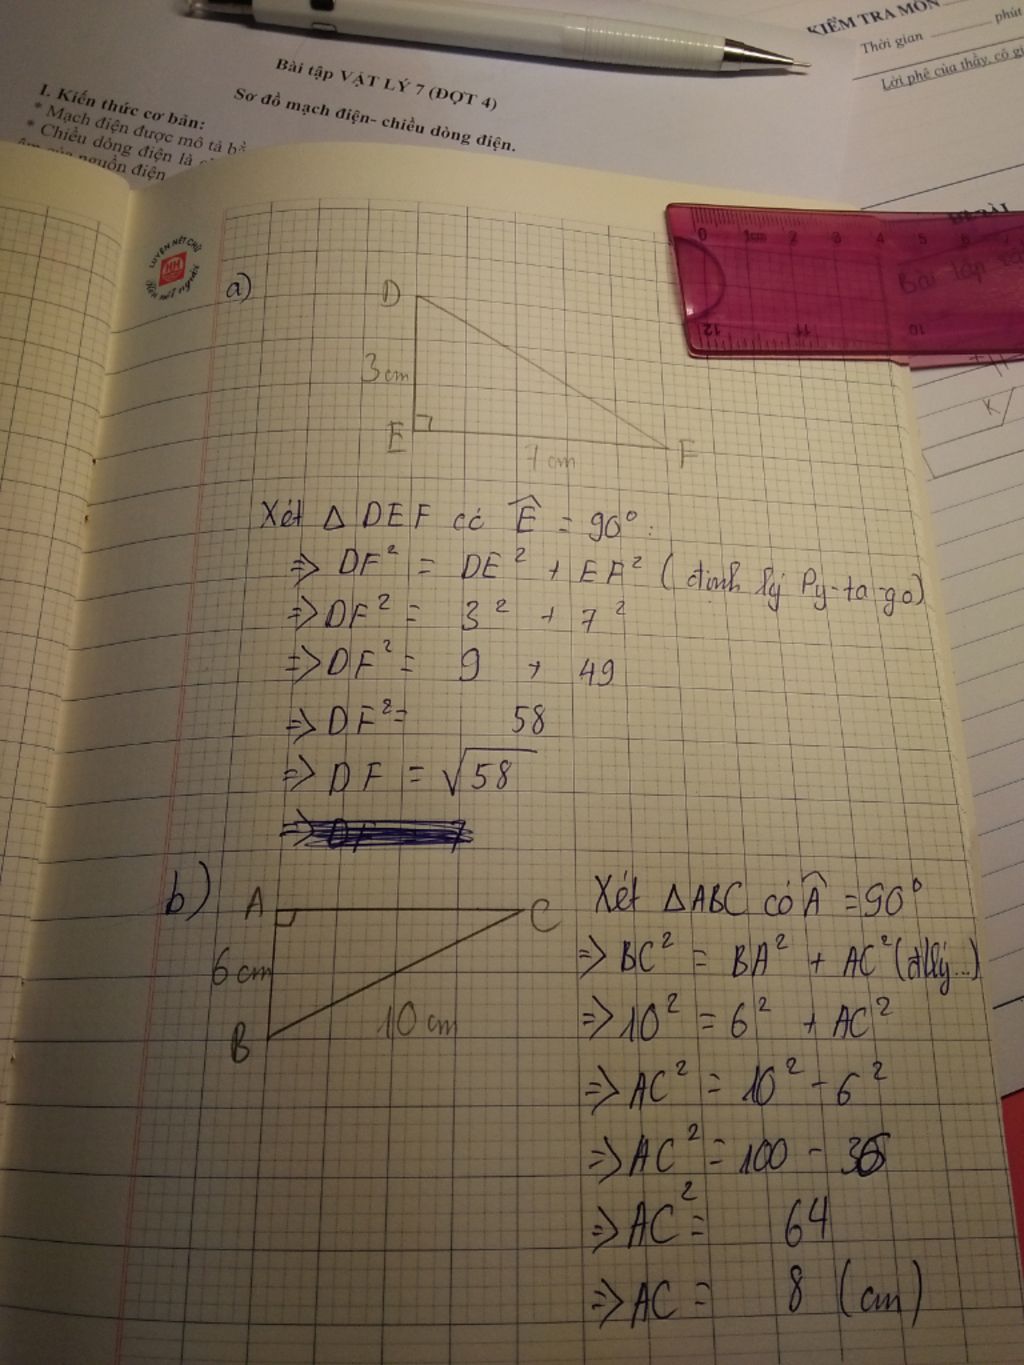 KIỂM TRA MÔN
Thời gian phút
Lời phê của thầy, cô gi
Bài tập VẬT LÝ 7 (ĐỢT 4)
Sơ đồ mạch điện- chiều dòng điện.
I. Kiến thức cơ bản:
* Mạch điện được mô tả bằ
* Chiều dòng điện là
nguồn điện
LUYỆN NÉT CHỮ
HH
Rèn nết người
0 1cm 2 3 4 5 6 7
Bài tập
12 11 10
K
a)
D
3cm
E
7 cm
F
Xét Δ DEF có Ê = 90°:
=> DF² = DE² + EF² ( định lý Py-ta-go)
=> DF² = 3² + 7²
=> DF² = 9 + 49
=> DF² = 58
=> DF = √58
b)
A
C
6 cm
10 cm
B
Xét ΔABC có Â = 90°
=> BC² = BA² + AC² (đ lý...)
=> 10² = 6² + AC²
=> AC² = 10² - 6²
=> AC² = 100 - 36
=> AC² = 64
=> AC = 8 (cm)